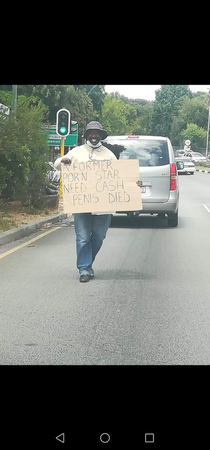 FORMER
PORN STAR
NEED CASH
PENIS DIED